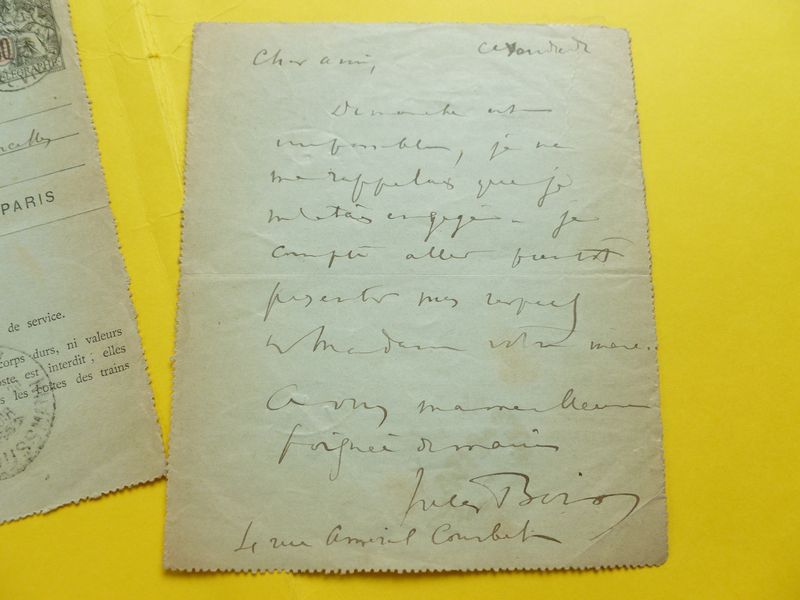 50
TÉLÉGRAPHES
PARIS
de service.
corps durs, ni valeurs
oste est interdit ; elles
s les boîtes des trains
Cher ami,
Ce Vendredi
Dimanche est
impossible, je ne
me rappelais que je
m'etais engagé. je
compte aller bientôt
presenter mes respects
à Madame votre mère.
A vous ma meilleure
poignée de mains
Jules Bois
4 rue Amiral Courbet